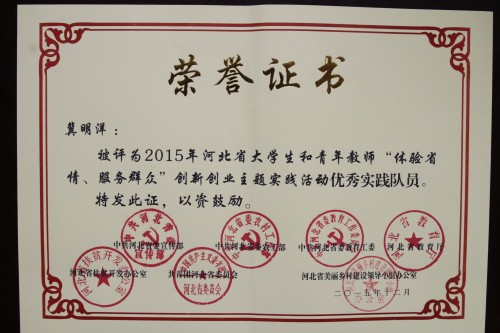 荣誉证书
龚明洋：
被评为2015年河北省大学生和青年教师“体验省
情、服务群众”创新创业主题实践活动优秀实践队员。
特发此证，以资鼓励。
中共河北省委宣传部 中共河北省委农工部 中共河北省委教育工委 河北省教育厅
河北省扶贫开发办公室 共青团河北省委员会 河北省美丽乡村建设领导小组办公室
二〇一五年十二月